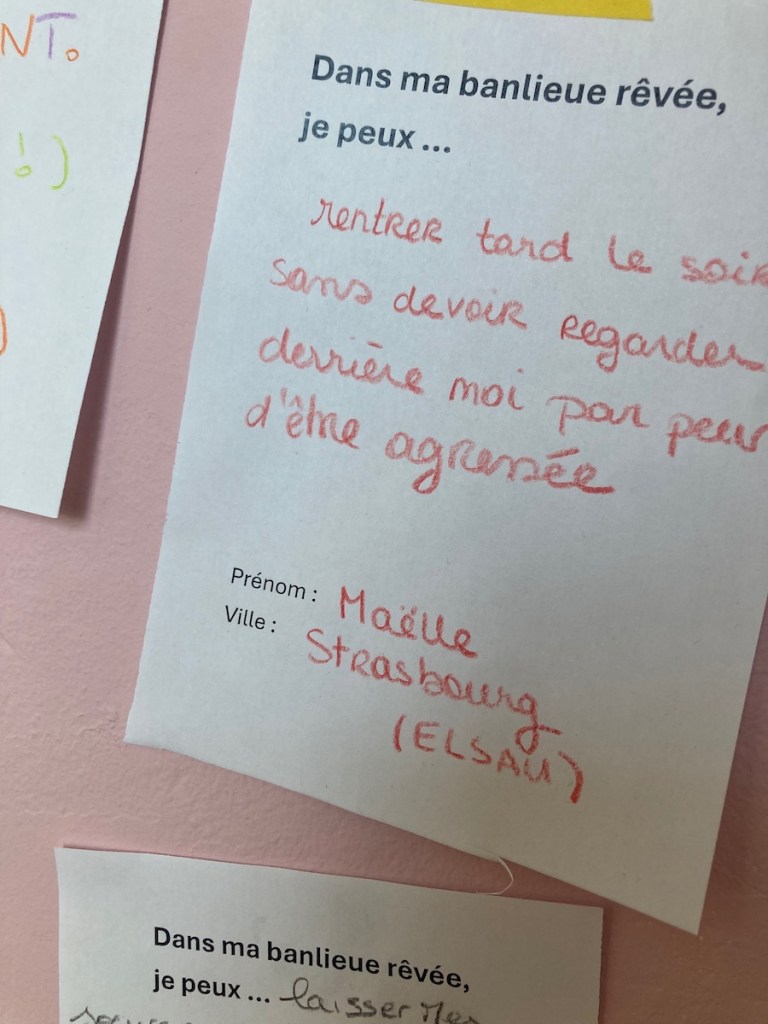 NT.
!)
)
Dans ma banlieue rêvée,
je peux ...
rentrer tard le soir
sans devoir regarder
derrière moi par peur
d'être agressée
Prénom : Maëlle
Ville : Strasbourg
(ELSAU)
Dans ma banlieue rêvée,
je peux ... laisser mes